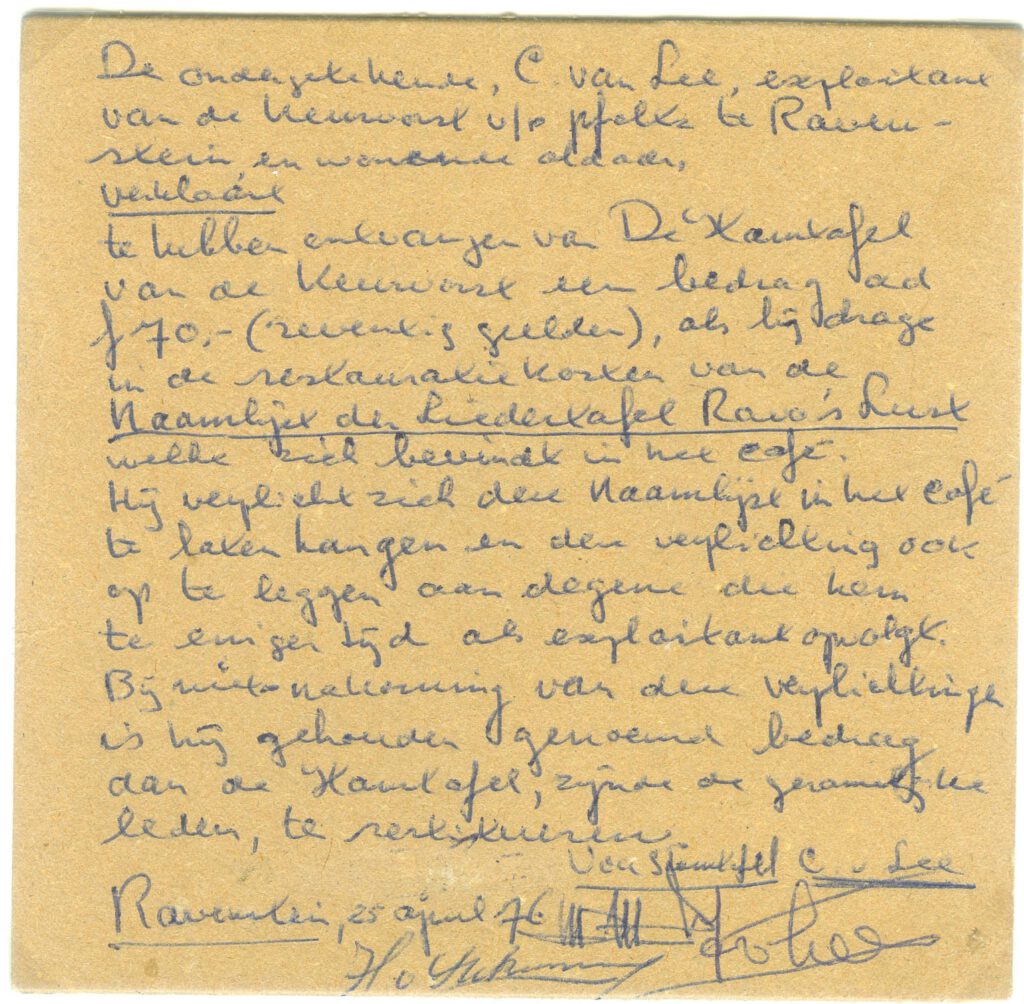 De ondergetekende, C. van Lee, exploitant
van de Keurvorst v/d pfaltz te Raven-
stein, en wonende aldaar,
verklaart
te hebben ontvangen van De Stamtafel
van de Keurvorst een bedrag ad
f 70,- (zeventig gulden), als bijdrage
in de restauratiekosten van de
Naamlijst der Liedertafel Rava's Lust
welke zich bevindt in het café.
Hij verplicht zich deze Naamlijst in het café
te laten hangen en deze verplichting ook
op te leggen aan degene die hem
te eniger tijd als exploitant opvolgt.
Bij niet-nakoming van deze verplichtingen
is hij gehouden genoemd bedrag
aan de Stamtafel, zijnde de gezamelijke
leden, te restitueren
Voor Stamtafel C v Lee
Ravenstein, 25 april 76.